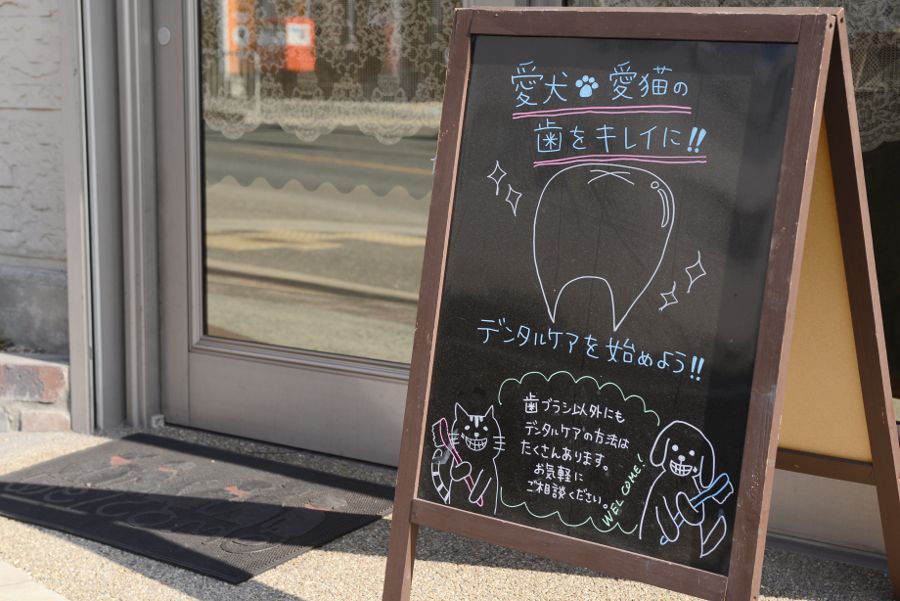 愛犬🐾愛猫の
歯をキレイに!!
デンタルケアを始めよう!!
歯ブラシ以外にも
デンタルケアの方法は
たくさんあります。
お気軽に
ご相談ください。
WELCOME!